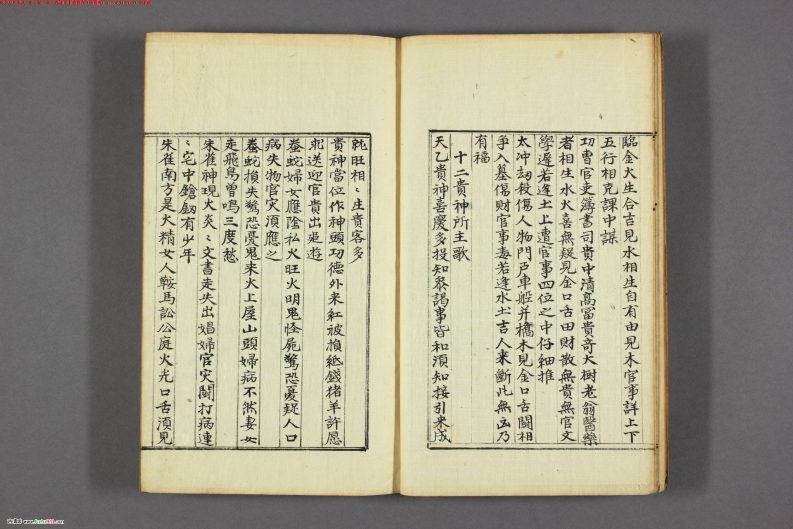 臨金火生合吉見水相生自有由見木官事詳上下
五行相克課中謀
功曹官吏簿書司貴中清高富貴奇大樹老翁醫藥
者相生水火喜無疑見金口舌田財散無貴無官文
學遲若逢土上遭官事四位之中仔細推
太冲劫殺傷人物門戶車船并橋木見金口舌鬭相
爭入墓傷財官事毒若逢水土吉人来斷此無凶乃
有福
十二貴神所主歌
天乙貴神喜慶多投知叅謁事皆和須知接引来成
就旺相〻生貴客多
貴神當位作神頭功德外来紅被損紙錢猪羊許愿
祀送迎官貴出逰遊
螣蛇婦女應陰私火旺火明鬼怪屍驚恐憂疑人口
病失物官灾須應之
螣蛇損失驚恐憂鬼来火上屋山頭婦病不然妻女
走飛鳥曽鳴三度愁
朱雀神現火炎〻文書走失出娼婦官灾鬭打病連
〻宅中鎗劒有少年
朱雀南方是火精女人鞍馬訟公庭火光口舌須見